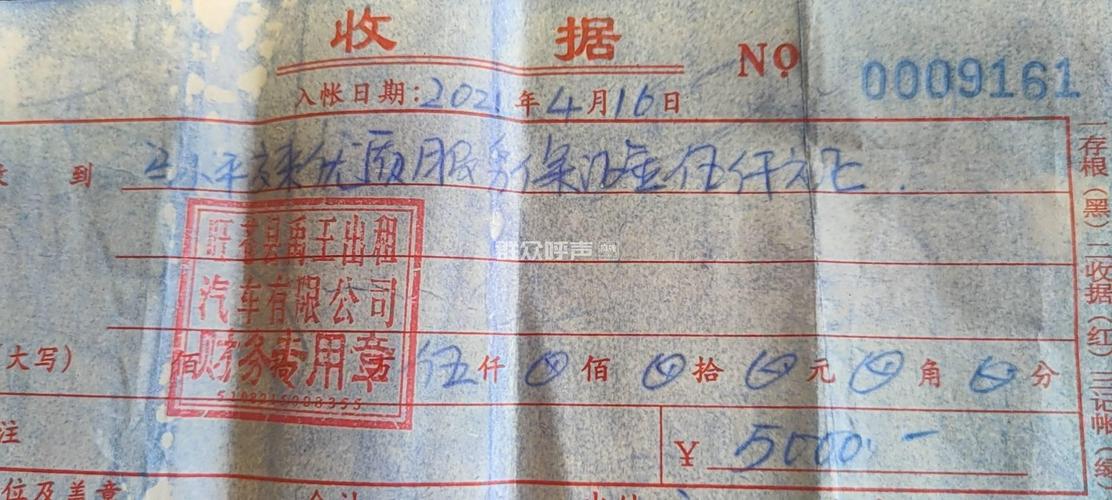 收 据 NO 0009161
入帐日期:2021年4月16日
到 平 来优质服务保证金伍仟元正.
群众呼声
盱眙县禹王出租
汽车有限公司
财务专用章
(大写) 佰 伍仟 0佰 0拾 0元 0角 0分
注
¥ 5000.-
位及盖章
存根(黑) 二收据(红) 三记帐